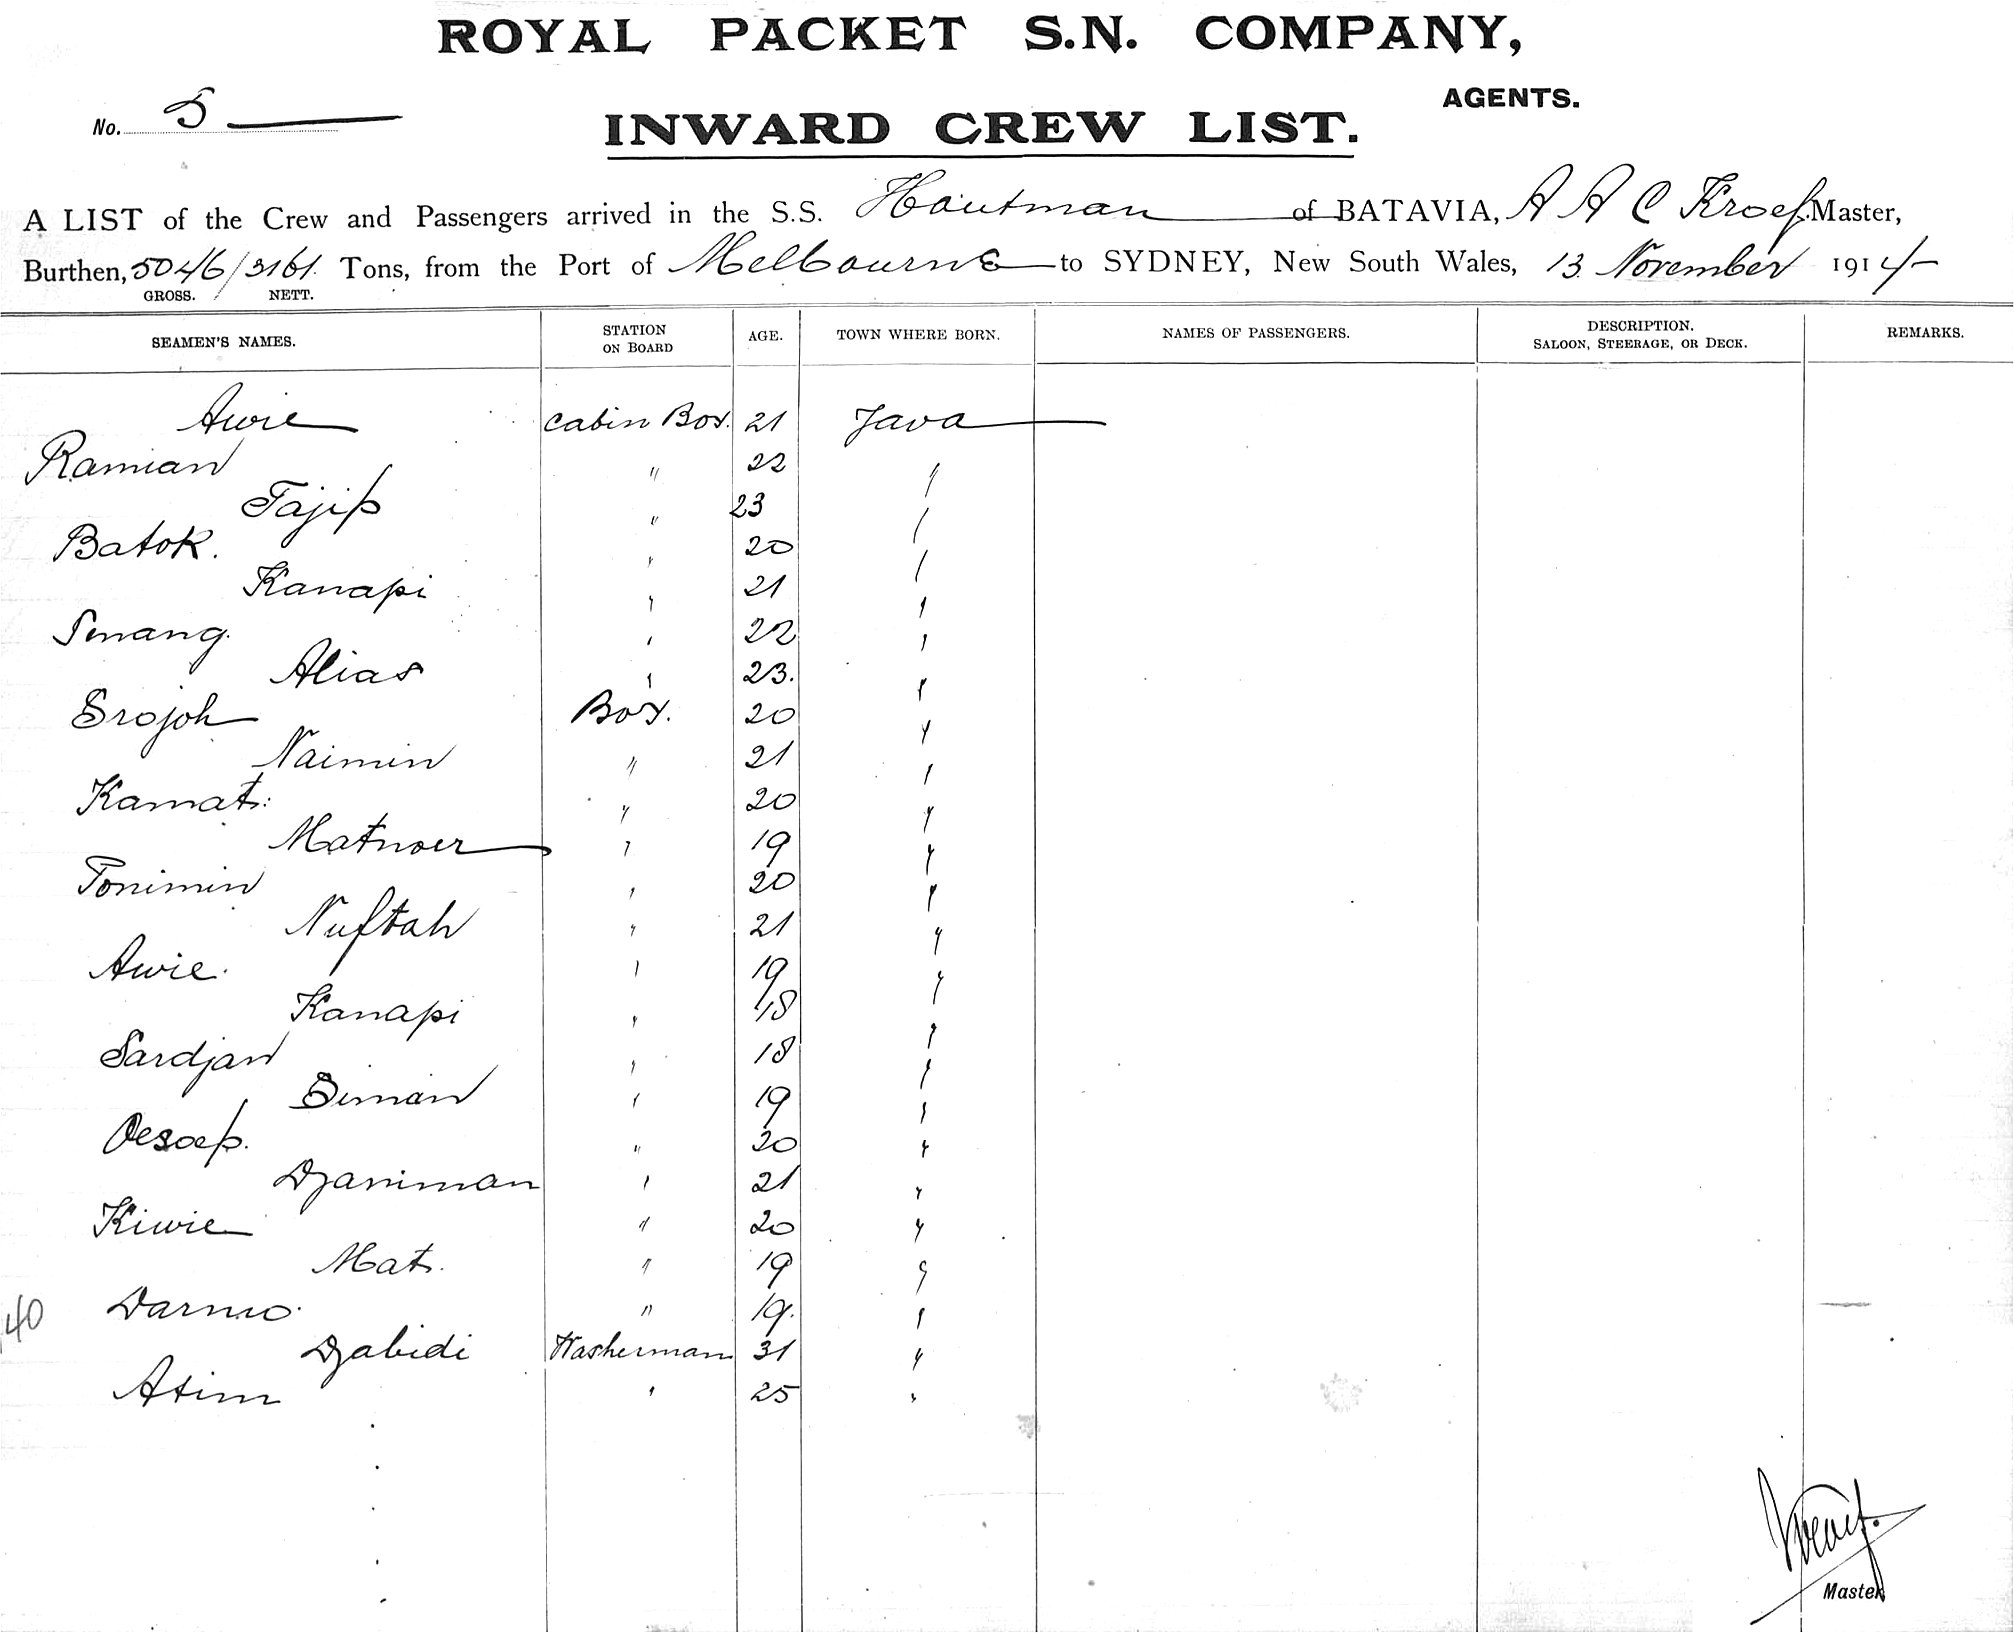 ROYAL PACKET S.N. COMPANY,
AGENTS.
No. 5
INWARD CREW LIST.
A LIST of the Crew and Passengers arrived in the S.S. Houtman of BATAVIA, A A C Kroef. Master,
Burthen, 5046/3161. Tons, from the Port of Melbourne to SYDNEY, New South Wales, 13. November 1914
GROSS. NETT.
SEAMEN'S NAMES. STATION ON BOARD AGE. TOWN WHERE BORN. NAMES OF PASSENGERS. DESCRIPTION. SALOON, STEERAGE, OR DECK. REMARKS.
Awie Cabin Boy. 21 Java
Ramian " 22 "
Tajip " 23 "
Batok. " 20 "
Kanapi " 21 "
Senang. " 22 "
Alias " 23. "
Srojoh Boy. 20 "
Naimin " 21 "
Kamat. " 20 "
Matnoer " 19 "
Tonimin " 20 "
Nuftah " 21 "
Awie. " 19 "
Kanapi " 18 "
Sardjan " 18 "
Siman " 19 "
Oesoep. " 20 "
Djaniman " 21 "
Kiwie " 20 "
Mat. " 19 "
40 Darmo. " 19. "
Djabidi Washerman 31 "
Atim " 25 "
Kroef.
Master